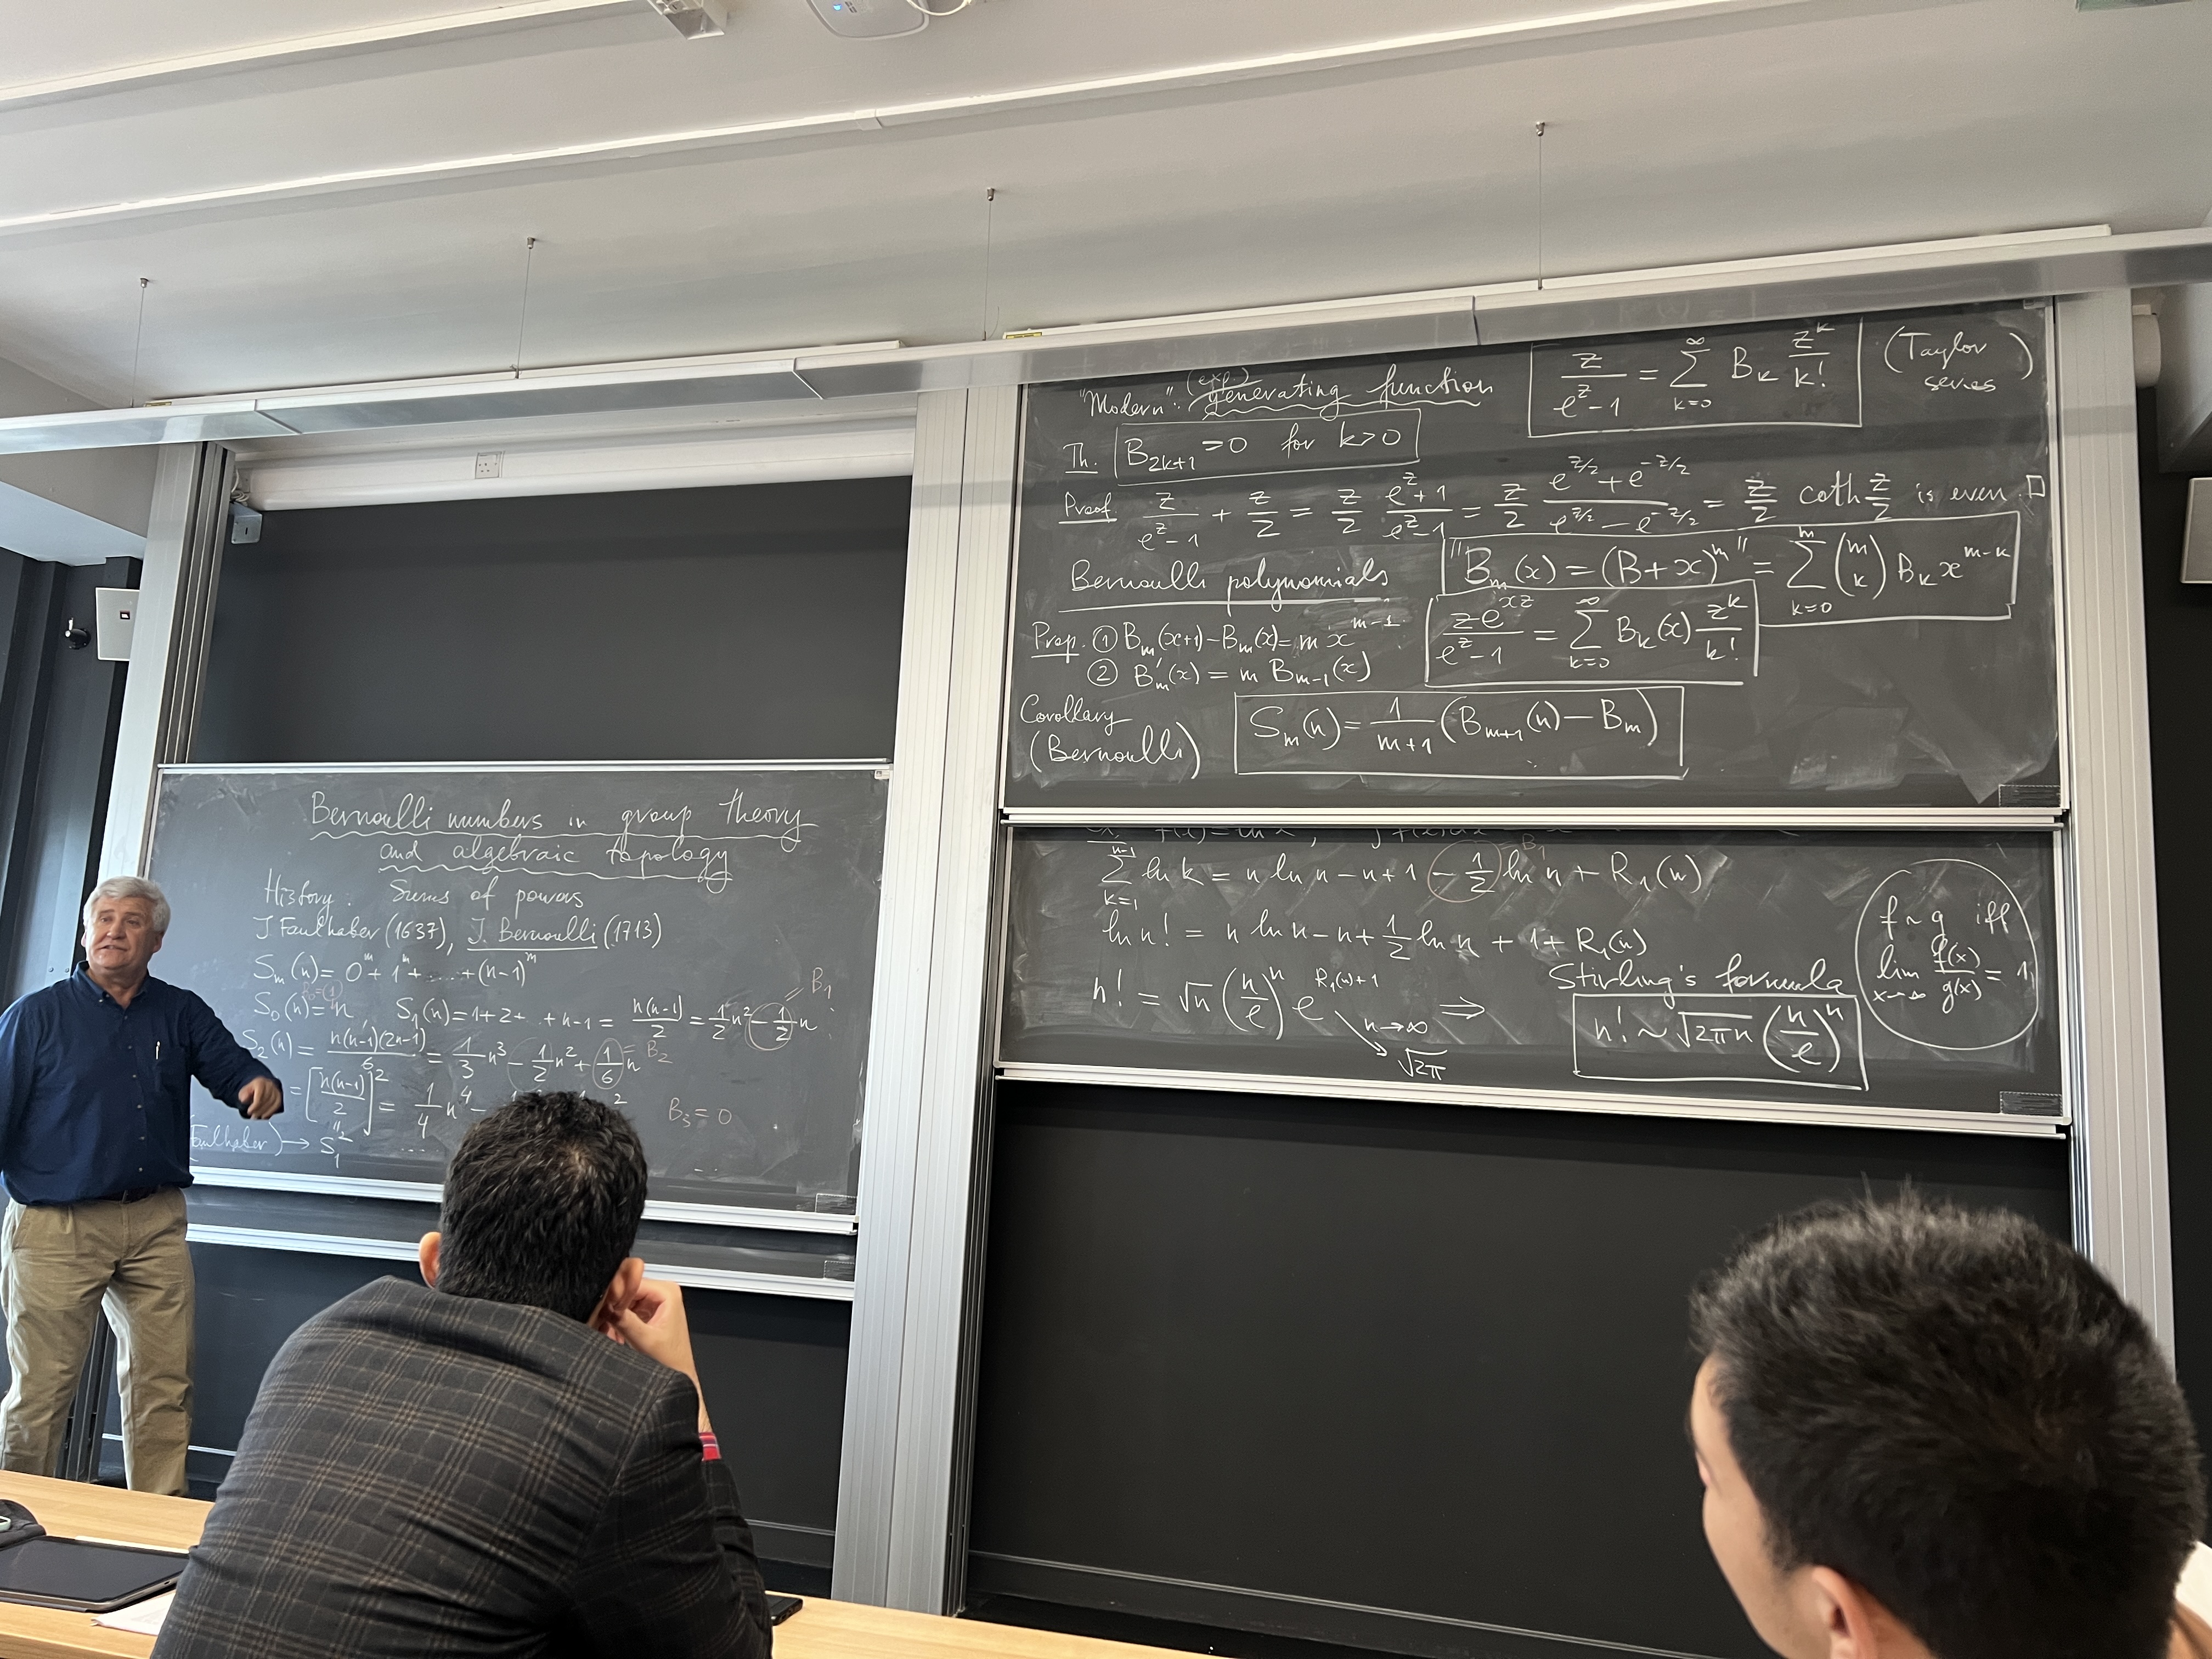 Bernoulli numbers in group theory
and algebraic topology
History: Sums of powers
J Faulhaber (1637), J. Bernoulli (1713)
Sₘ(n) = 0ᵐ + 1ᵐ + ... + (n-1)ᵐ
B₀ = 1
S₀(n) = n S₁(n) = 1+2+ ... + n-1 = n(n-1)/2 = 1/2 n² - 1/2 n = B₁
S₂(n) = n(n-1)(2n-1)/6 = 1/3 n³ - 1/2 n² + 1/6 n = B₂
= [n(n-1)/2]² = 1/4 n⁴ - B₃ = 0
Faulhaber) → S₁² ....
"Modern": (exp.) generating function z/(e^z - 1) = ∑_{k=0}^∞ B_k z^k/k! (Taylor series)
Th. B_{2k+1} = 0 for k>0
Proof z/(e^z - 1) + z/2 = z/2 (e^z + 1)/(e^z - 1) = z/2 (e^{z/2} + e^{-z/2})/(e^{z/2} - e^{-z/2}) = z/2 coth z/2 is even □
Bernoulli polynomials "Bₘ(x) = (B+x)ᵐ" = ∑_{k=0}^m (m k) B_k x^{m-k}
Prop. ① Bₘ(x+1) - Bₘ(x) = m x^{m-1} z e^{xz}/(e^z - 1) = ∑_{k=0}^∞ B_k(x) z^k/k!
② B'ₘ(x) = m B_{m-1}(x)
Corollary
(Bernoulli) Sₘ(n) = 1/(m+1) (B_{m+1}(n) - Bₘ)
∑_{k=1}^{n-1} ln k = n ln n - n + 1 - 1/2 ln n + R₁(n) = B₁
ln n! = n ln n - n + 1/2 ln n + 1 + R₁(n)
n! = √n (n/e)ⁿ e^{R₁(n)+1} ⇒
n→∞
√2π
Stirling's formula
n! ~ √2πn (n/e)ⁿ
f ~ g iff
lim_{x→∞} f(x)/g(x) = 1